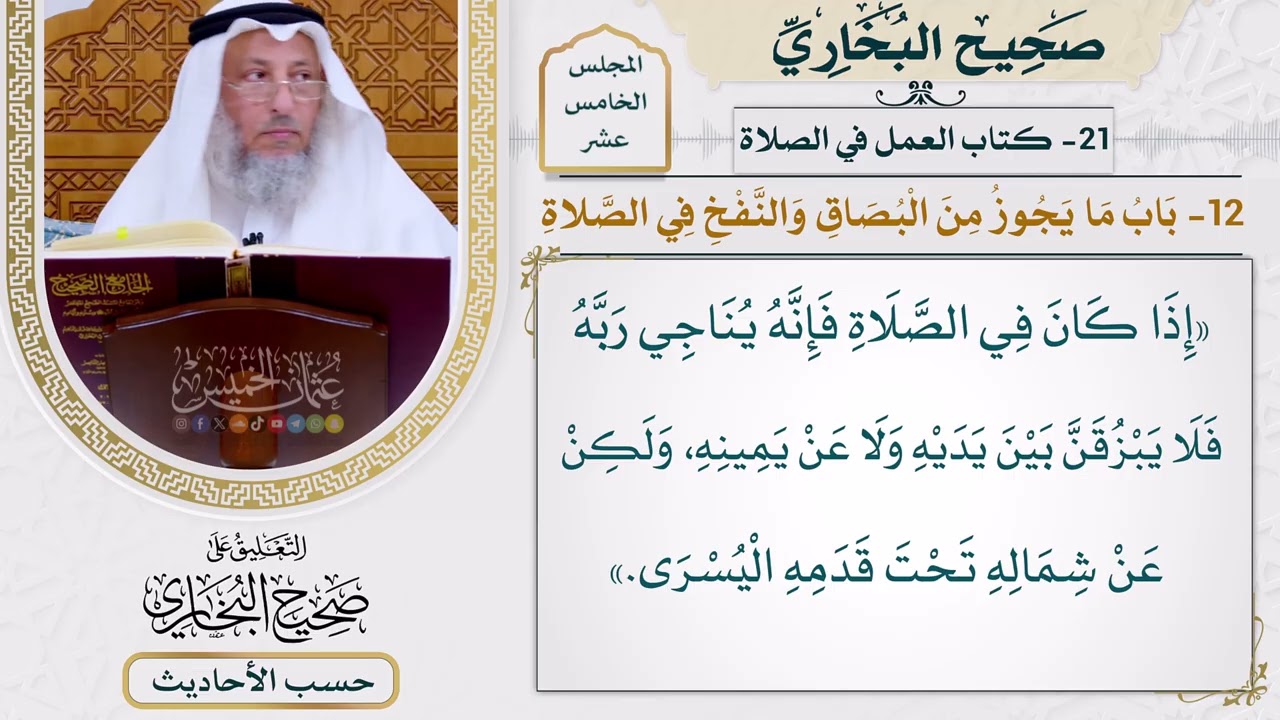 صَحِيح البُخَارِيِّ
المجلس
الخامس
عشر
21- كتاب العمل في الصلاة
12- بَابُ مَا يَجُوزُ مِنَ الْبُصَاقِ وَالنَّفْخِ فِي الصَّلَاةِ
«إِذَا كَانَ فِي الصَّلَاةِ فَإِنَّهُ يُنَاجِي رَبَّهُ
فَلَا يَبْزُقَنَّ بَيْنَ يَدَيْهِ وَلَا عَنْ يَمِينِهِ، وَلَكِنْ
عَنْ شِمَالِهِ تَحْتَ قَدَمِهِ الْيُسْرَى.»
الجامع الصحيح
عُثمان الخميس
التَّعْلِيقُ عَلَى
صَحِيحِ البُخَارِي
حسب الأحاديث